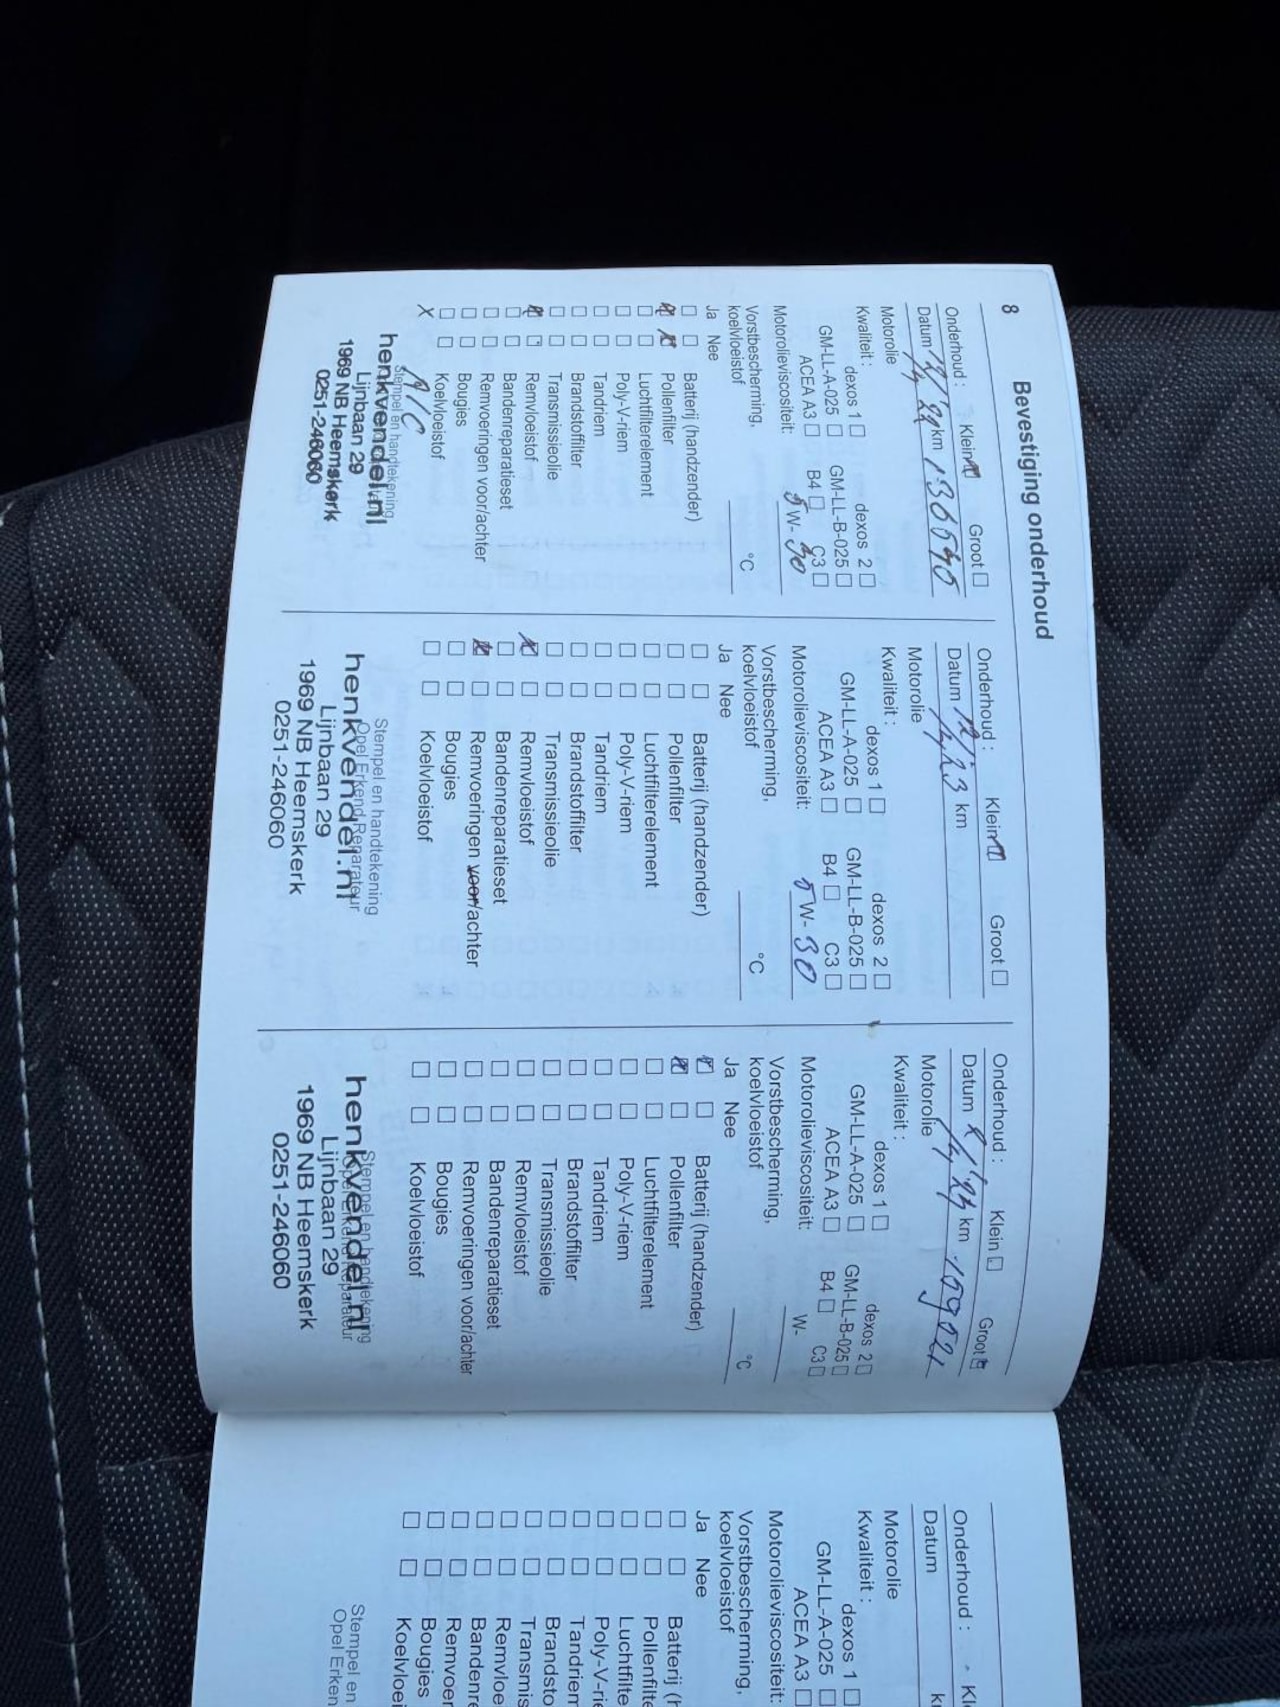 8
Bevestiging onderhoud
Onderhoud : Klein Groot
Datum km 136695
Motorolie
Kwaliteit : dexos 1 dexos 2
GM-LL-A-025 GM-LL-B-025
ACEA A3 B4 C3
Motorolieviscositeit: 5 W- 30
Vorstbescherming,
koelvloeistof °C
Ja Nee
Batterij (handzender)
Pollenfilter
Luchtfilterelement
Poly-V-riem
Tandriem
Brandstoffilter
Transmissieolie
Remvloeistof
Bandenreparatieset
Remvoeringen voor/achter
Bougies
Koelvloeistof
X A/C
Stempel en handtekening
henkvendel.nl
Lijnbaan 29
1969 NB Heemskerk
0251-246060
Onderhoud : Klein Groot
Datum km
Motorolie
Kwaliteit : dexos 1 dexos 2
GM-LL-A-025 GM-LL-B-025
ACEA A3 B4 C3
Motorolieviscositeit: 5 W- 30
Vorstbescherming,
koelvloeistof °C
Ja Nee
Batterij (handzender)
Pollenfilter
Luchtfilterelement
Poly-V-riem
Tandriem
Brandstoffilter
Transmissieolie
Remvloeistof
Bandenreparatieset
Remvoeringen voor/achter
Bougies
Koelvloeistof
Stempel en handtekening
Opel Erkend Reparateur
henkvendel.nl
Lijnbaan 29
1969 NB Heemskerk
0251-246060
Onderhoud : Klein Groot
Datum km 109021
Motorolie
Kwaliteit : dexos 1 dexos 2
GM-LL-A-025 GM-LL-B-025
ACEA A3 B4 C3
Motorolieviscositeit: W-
Vorstbescherming,
koelvloeistof °C
Ja Nee
Batterij (handzender)
Pollenfilter
Luchtfilterelement
Poly-V-riem
Tandriem
Brandstoffilter
Transmissieolie
Remvloeistof
Bandenreparatieset
Remvoeringen voor/achter
Bougies
Koelvloeistof
Stempel en handtekening
Opel Erkend Reparateur
henkvendel.nl
Lijnbaan 29
1969 NB Heemskerk
0251-246060
Onderhoud : Kl
Datum k
Motorolie
Kwaliteit : dexos 1
GM-LL-A-025
ACEA A3
Motorolieviscositeit:
Vorstbescherming,
koelvloeistof
Ja Nee
Batterij (h
Pollenfilte
Luchtfilte
Poly-V-rie
Tandriem
Brandsto
Transmis
Remvloe
Bandenre
Remvoer
Bougies
Koelvloei
Stempel en
Opel Erken